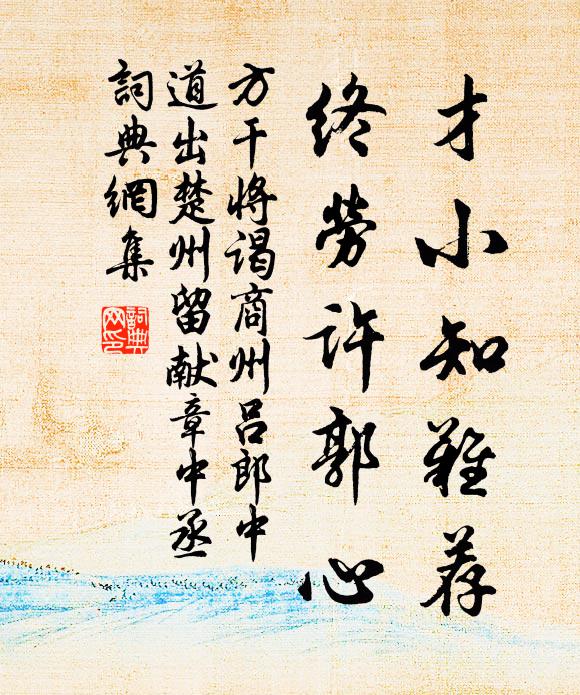 才小知難荐
终劳许郭心
方干将谒商州吕郎中
道出楚州留献章中丞
詞典網集
詞典
网印